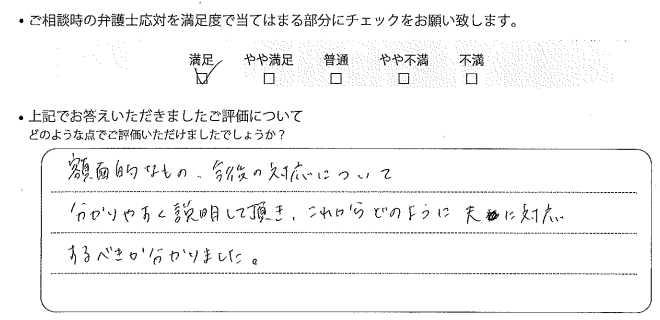 ・ご相談時の弁護士応対を満足度で当てはまる部分にチェックをお願い致します。
満足 やや満足 普通 やや不満 不満
・上記でお答えいただきましたご評価について
どのような点でご評価いただけましたでしょうか?
額面的なもの、今後の対応について
分かりやすく説明して頂き、これからどのように夫に対応
するべきか分かりました。